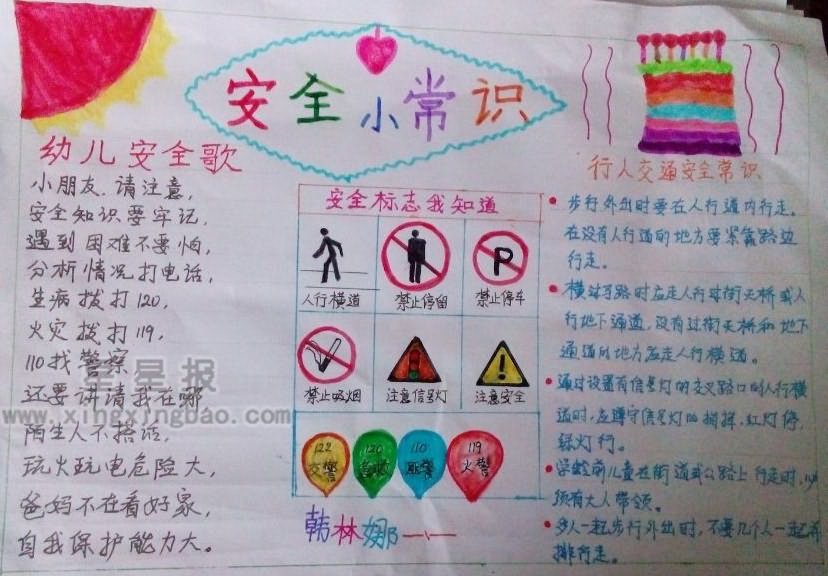 安全小常识
幼儿安全歌
小朋友,请注意,
安全知识要牢记,
遇到困难不要怕,
分析情况打电话,
生病拨打120,
火灾拨打119,
110找警察
还要讲请我在哪
陌生人不搭话,
玩火玩电危险大,
爸妈不在看好家,
自我保护能力大。
星星报
www.xingxingbao.com
安全标志我知道
人行横道
禁止停留
P
禁止停车
禁止吸烟
注意信号灯
注意安全
122
交警
120
急救
110
匪警
119
火警
韩林娜
行人交通安全常识
步行外出时要在人行道内行走。
在没有人行道的地方要紧靠路边
行走。
横过马路时应走人行过街天桥或人
行地下通道,没有过街天桥和地下
通道的地方应走人行横道。
通过设置有信号灯的交叉路口的人行横
道时,应遵守信号灯的指挥,红灯停,
绿灯行。
学龄前儿童在街道或公路上行走时,
须有大人带领。
多人一起步行外出时,不要几个人一起并
排行走。